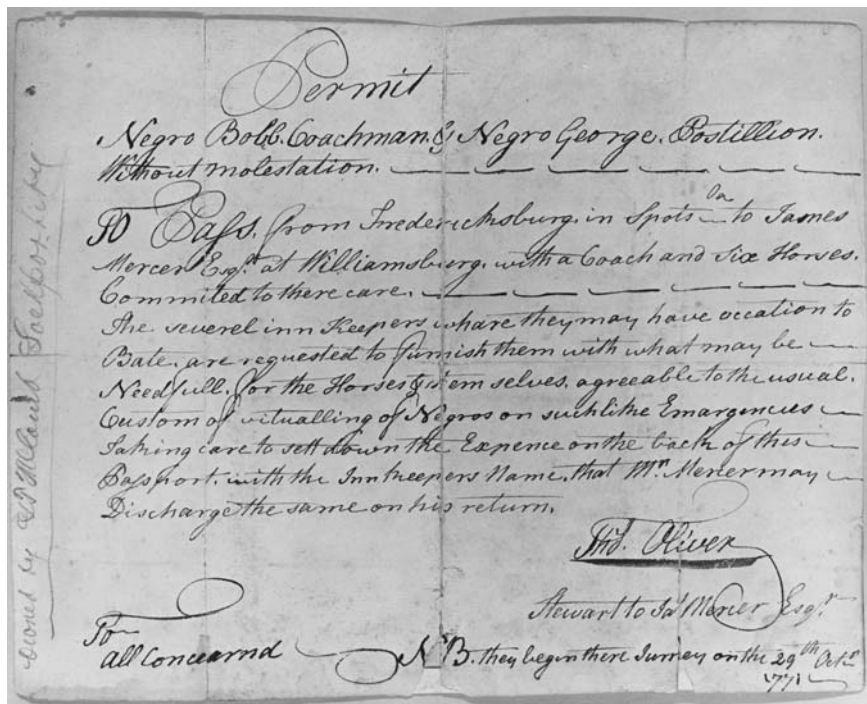 Permit
Negro Bobb. Coachman. & Negro George. Postillion.
Without molestation.
To Pass. from Fredericksburg. in Spots Va to James
Mercer Esqr. at Williamsburg. with a Coach and Six Horses.
Commited to there care.
The severel inn Keepers whare they may have occation to
Bate. are requested to furnish them with what may be
Needfull. for the Horses & them selves. agreeable to the usual.
Custom of vitualling of Negros on such like Emargencies
Taking care to sett down the Expence on the back of this
Passport. with the Innkeepers Name. that Mr. Mercer may
Discharge the same on his return.
Oliver
Stewart to Jas Mercer Esqr.
To
all Concearnd
N.B. they begin there Jurney on the 29th Octr
1771
owned by McCould